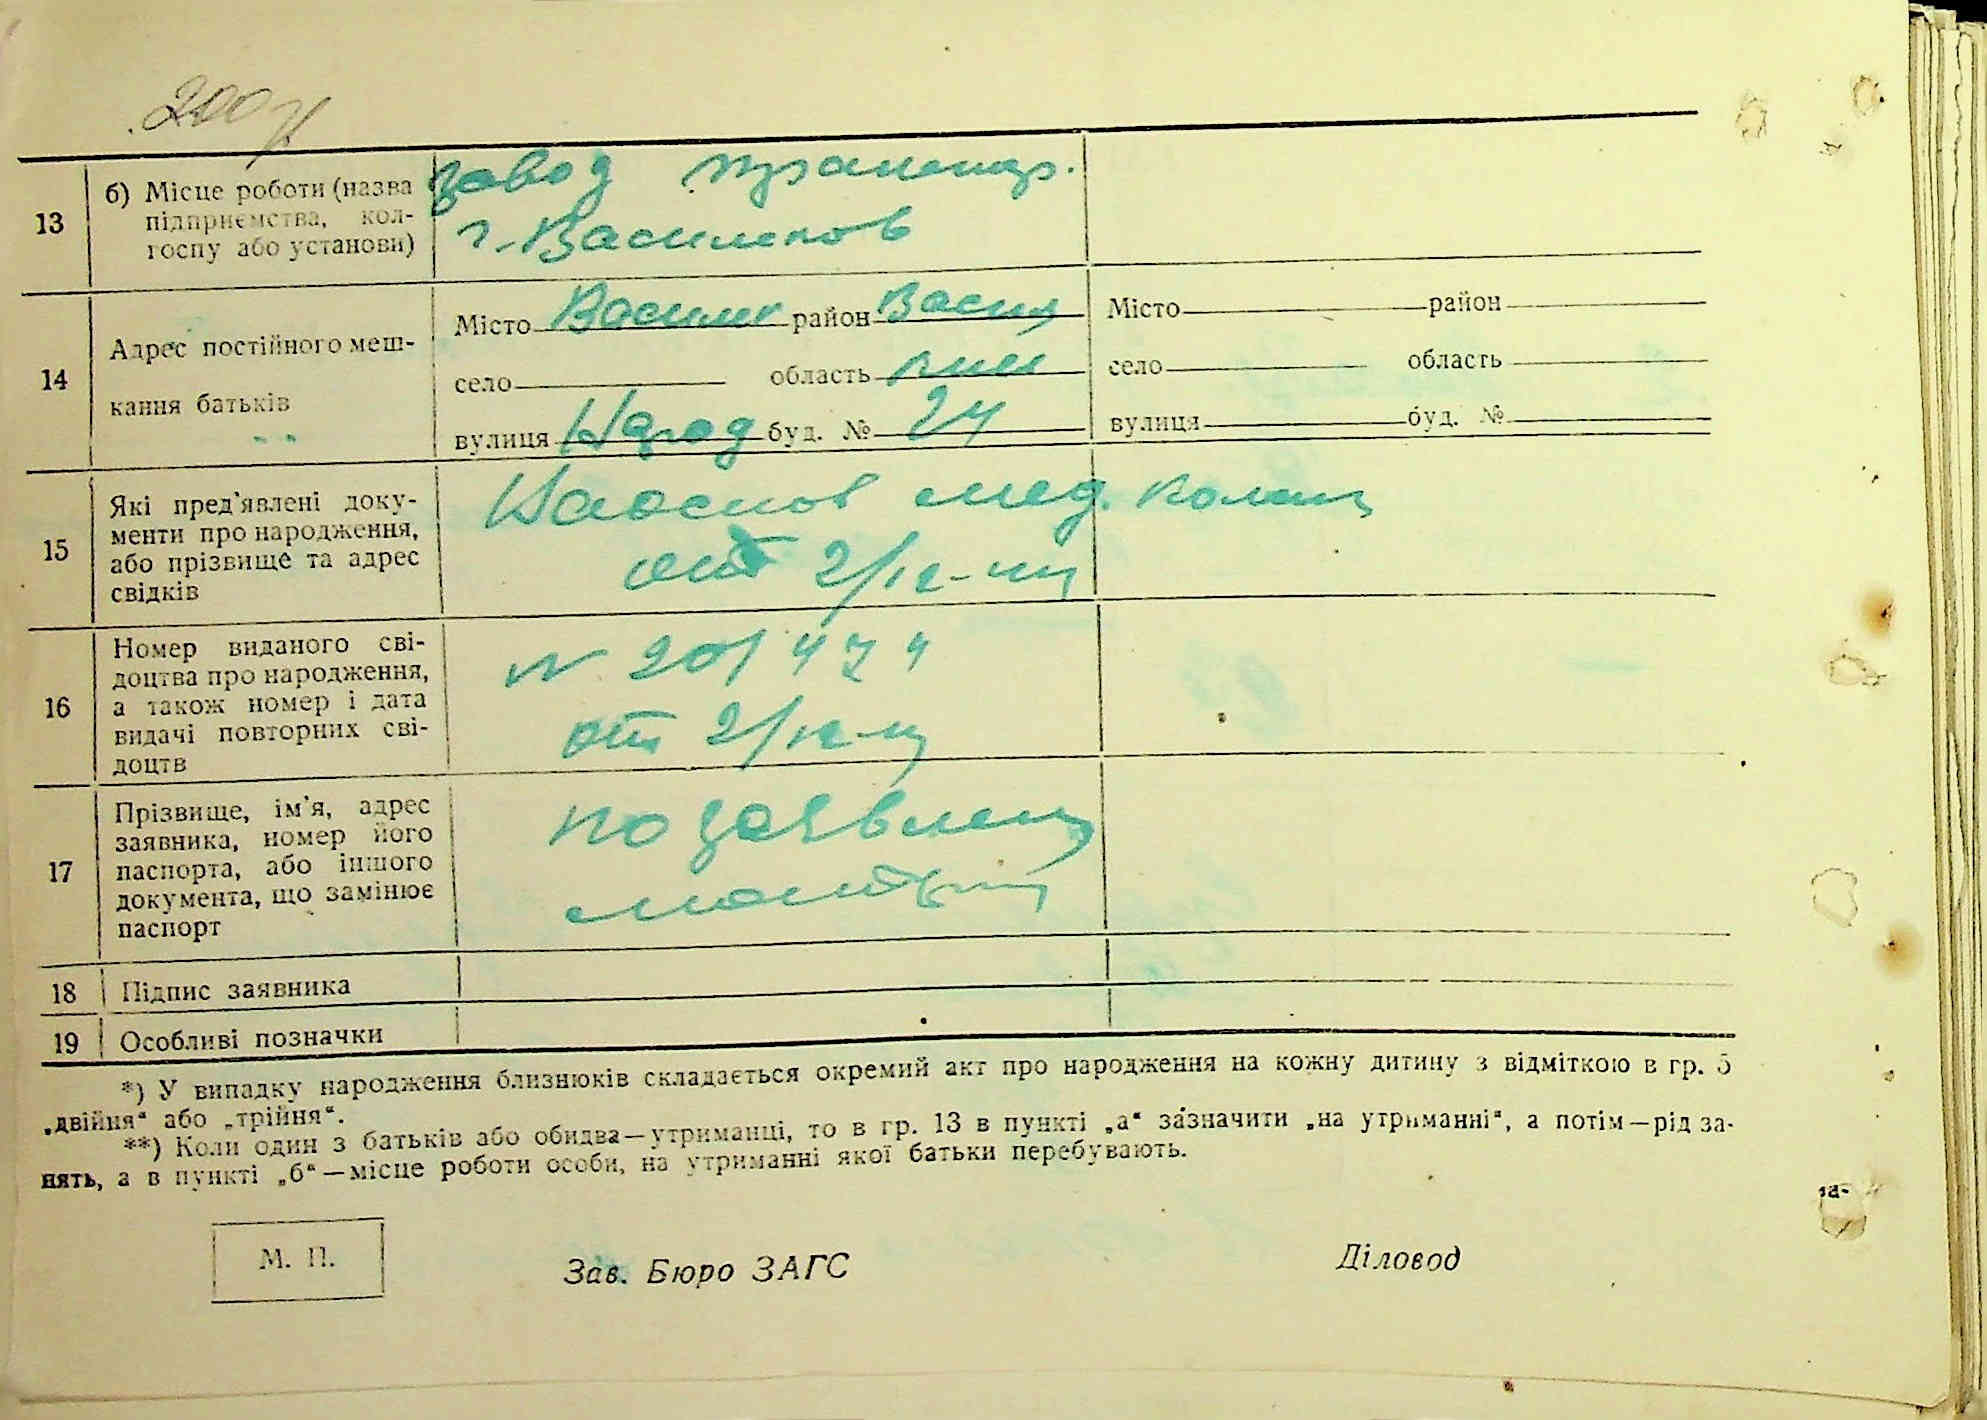 200
13
б) Місце роботи (назва підприємства, кол-
госпу або установи)
завод
г. Васильков
14
Адрес постійного меш-
кання батьків
Місто Васильк район Васил
село область киев
вулиця Народ буд. № 24
Місто район
село область
вулиця буд. №
15
Які пред'явлені доку-
менти про народження,
або прізвище та адрес
свідків
мед.
от 2/
16
Номер виданого сві-
доцтва про народження,
а також номер і дата
видачі повторних сві-
доцтв
от 2/
17
Прізвище, ім'я, адрес
заявника, номер його
паспорта, або іншого
документа, що замінює
паспорт
по заявлен
матери
18
Підпис заявника
19
Особливі позначки
*) У випадку народження близнюків складається окремий акт про народження на кожну дитину з відміткою в гр. 5
„двійня“ або „трійня“.
**) Коли один з батьків або обидва—утриманці, то в гр. 13 в пункті „а“ зазначити „на утриманні“, а потім—рід за-
нять, а в пункті „б“—місце роботи особи, на утриманні якої батьки перебувають.
М. П.
Зав. Бюро ЗАГС
Діловод